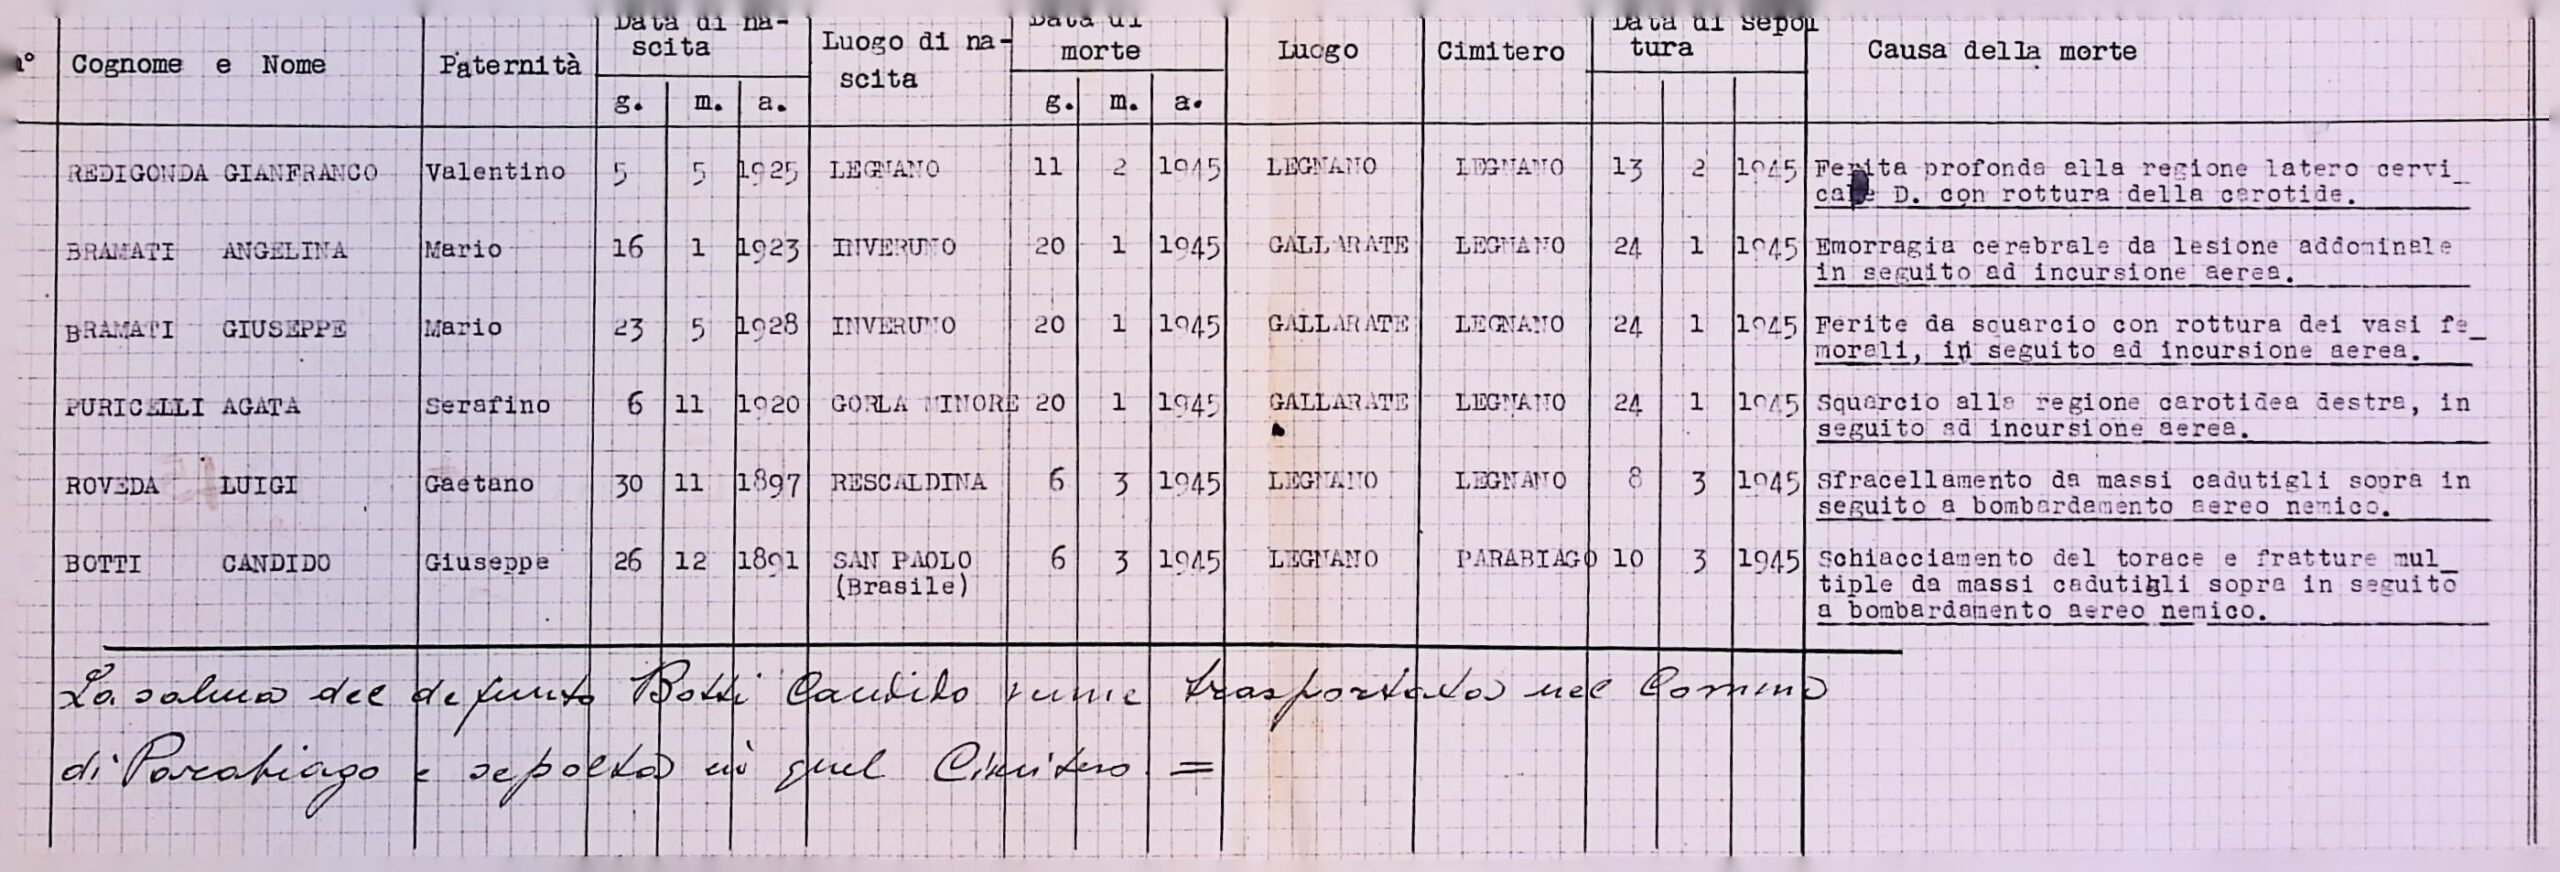 Data di na-
scita
Data di
morte
Data di sepol
tura
n° Cognome e Nome Paternità Luogo di na-
scita Luogo Cimitero Causa della morte
g. m. a. g. m. a.
REDIGONDA GIANFRANCO Valentino 5 5 1925 LEGNANO 11 2 1945 LEGNANO LEGNANO 13 2 1945 Ferita profonda alla regione latero cervi_
cale D. con rottura della carotide.
BRAMATI ANGELINA Mario 16 1 1923 INVERUNO 20 1 1945 GALLARATE LEGNANO 24 1 1945 Emorragia cerebrale da lesione addominale
in seguito ad incursione aerea.
BRAMATI GIUSEPPE Mario 23 5 1928 INVERUNO 20 1 1945 GALLARATE LEGNANO 24 1 1945 Ferite da squarcio con rottura dei vasi fe_
morali, in seguito ad incursione aerea.
PURICELLI AGATA Serafino 6 11 1920 GORLA MINORE 20 1 1945 GALLARATE LEGNANO 24 1 1945 Squarcio alla regione carotidea destra, in
seguito ad incursione aerea.
ROVEDA LUIGI Gaetano 30 11 1897 RESCALDINA 6 3 1945 LEGNANO LEGNANO 8 3 1945 Sfracellamento da massi cadutigli sopra in
seguito a bombardamento aereo nemico.
BOTTI CANDIDO Giuseppe 26 12 1891 SAN PAOLO 6 3 1945 LEGNANO PARABIAGO 10 3 1945 Schiacciamento del torace e fratture mul_
(Brasile) tiple da massi cadutigli sopra in seguito
a bombardamento aereo nemico.
La salma del defunto Botti Candido venne trasportata nel Comune
di Parabiago e sepolta in quel Cimitero =